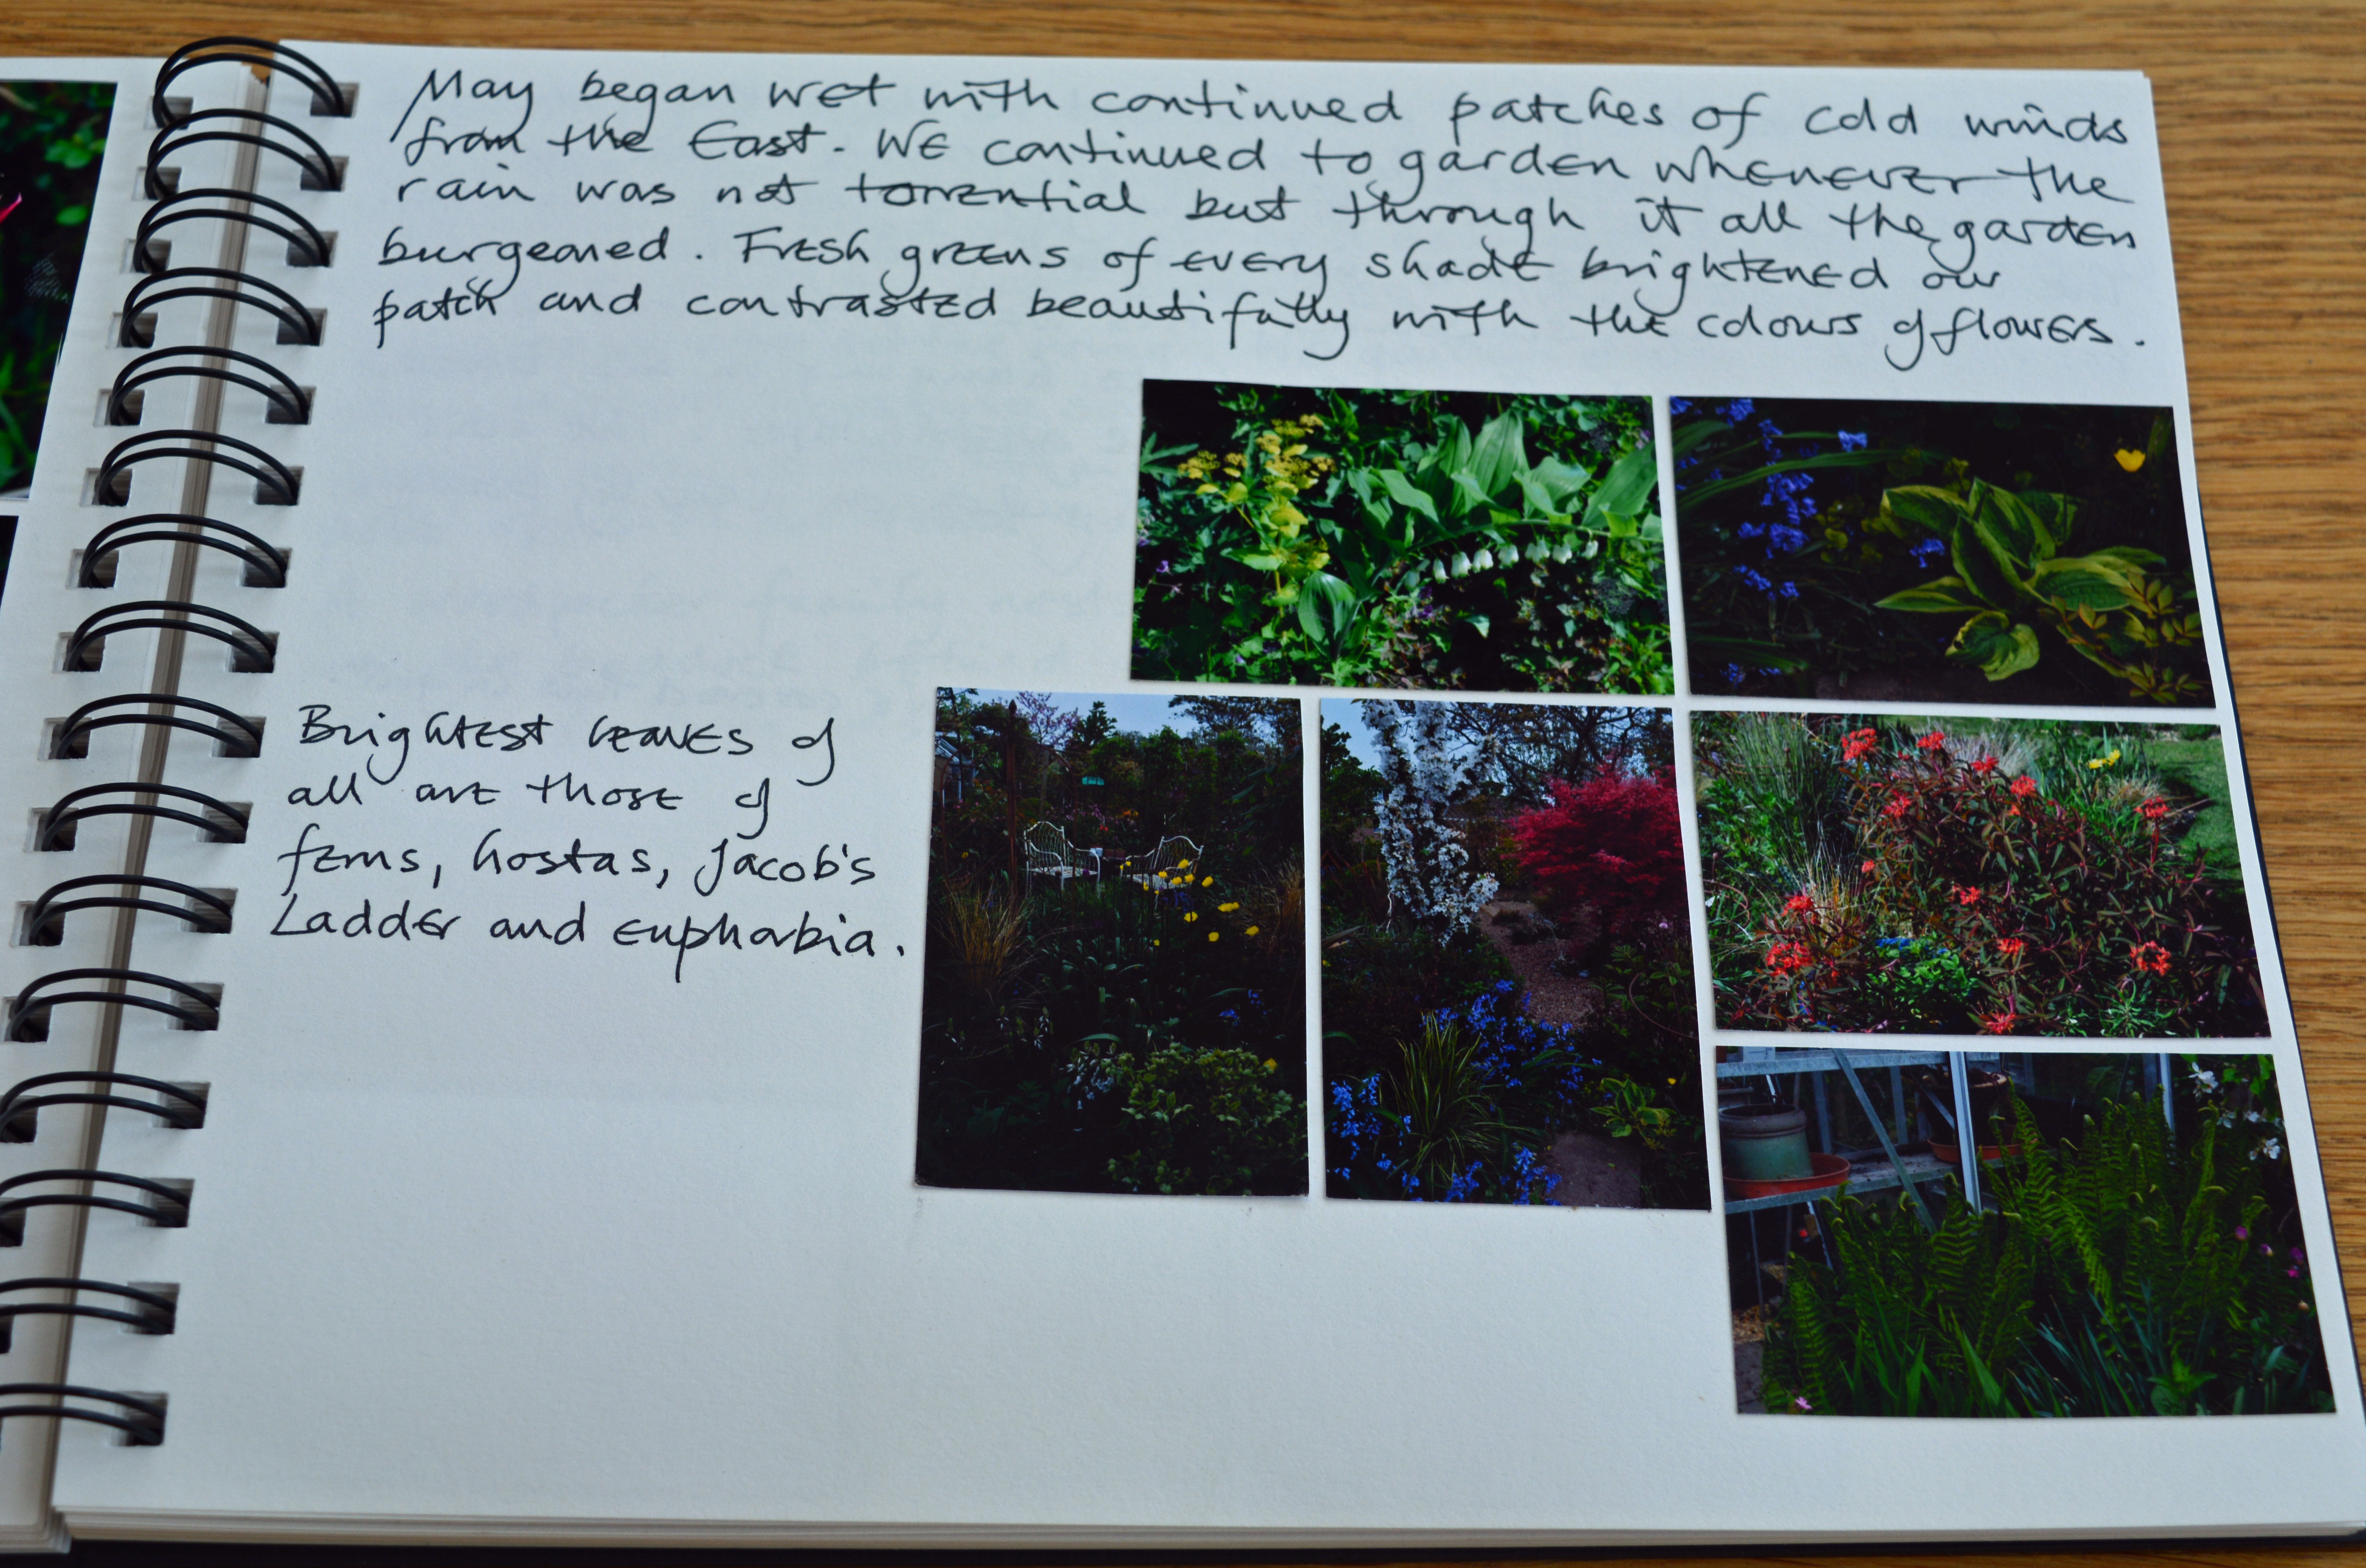 May began wet with continued patches of cold winds
from the East. We continued to garden whenever the
rain was not torrential but through it all the garden
burgeoned. Fresh greens of every shade brightened our
patch and contrasted beautifully with the colours of flowers.
Brightest leaves of
all are those of
ferns, hostas, Jacob's
Ladder and euphorbia.